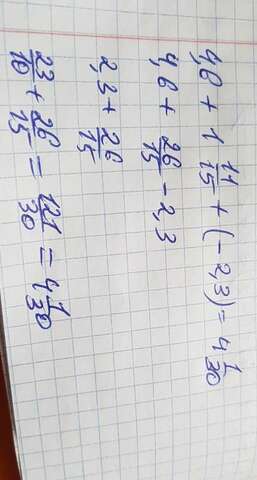 4,6 + 1 11/15 + (-2,3) = 4 1/30
4,6 + 26/15 - 2,3
2,3 + 26/15
23/10 + 26/15 = 121/30 = 4 1/30